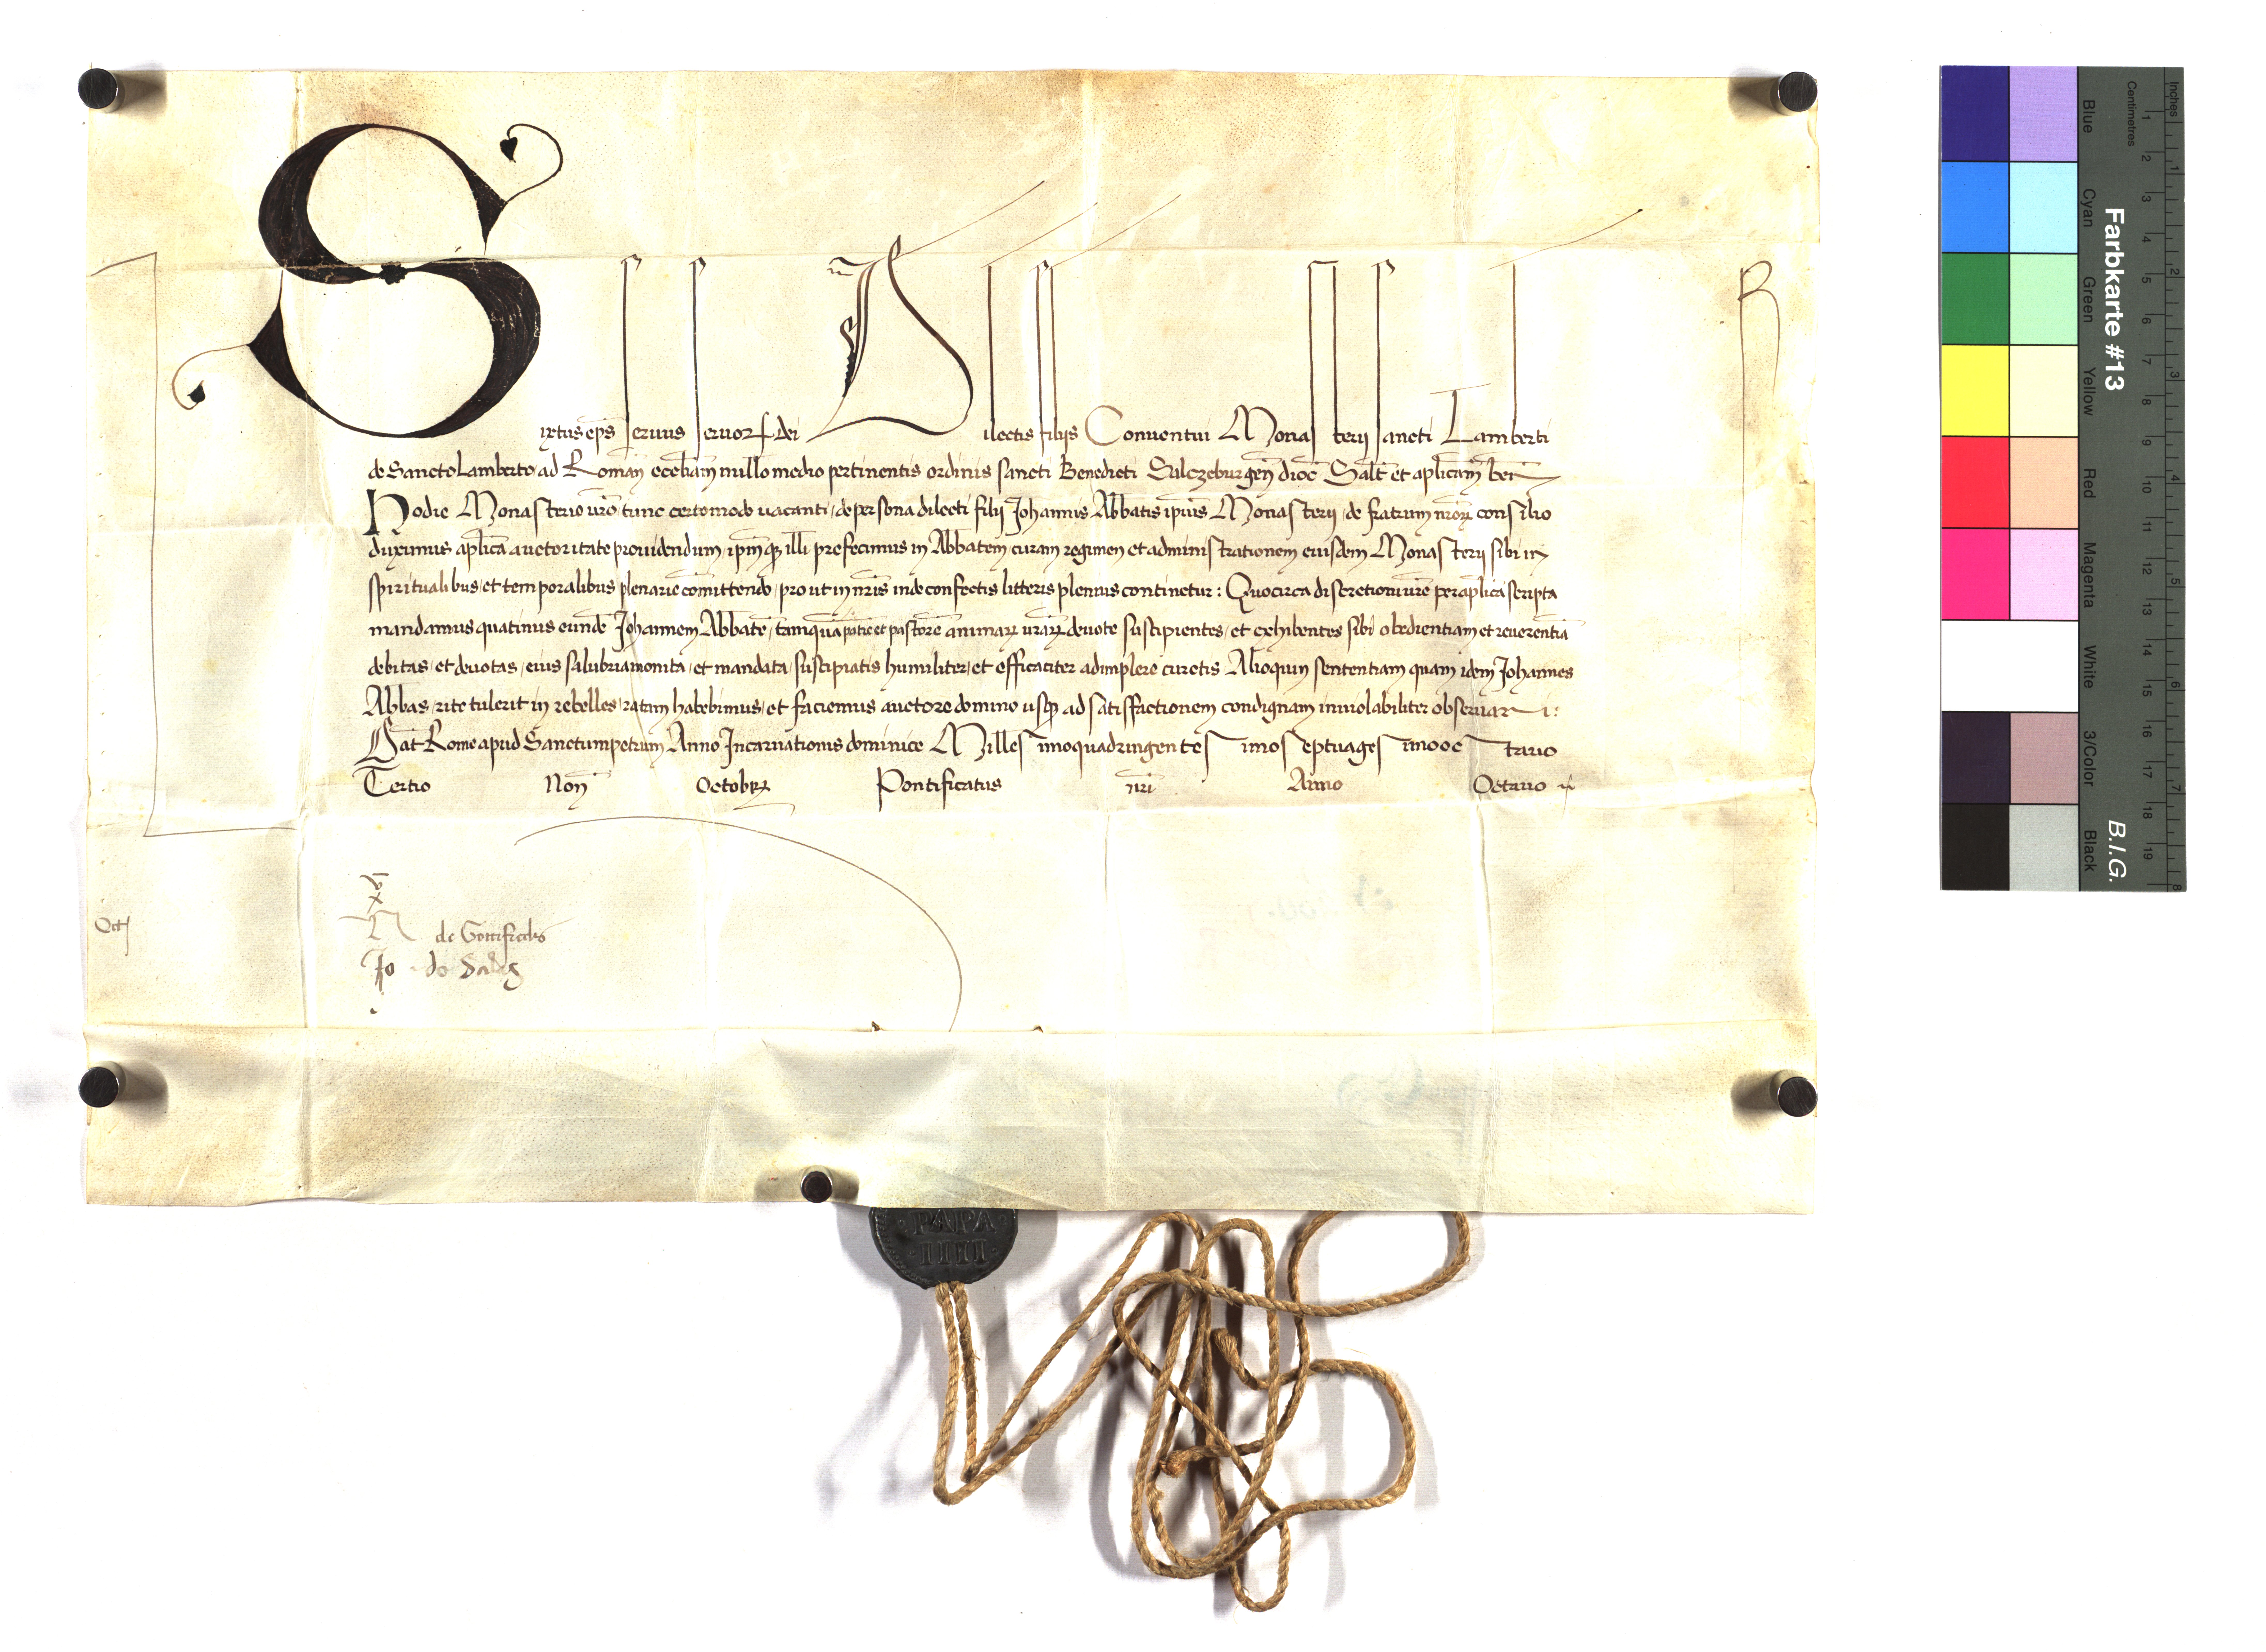 Sixtus ep̄s seruus seruoꝝ dei Dilectis filijs Conuentui Monasterij sancti Lamberti
de Sancto Lamberto ad Romañ eccl̄iam nullo medio pertinentis ordinis sancti Benedicti Salczeburgeñ dioc̄ Salt̄ et apl̄icam̄ beñ
Hodie Monasterio vr̄o tunc certo modo uacanti, de persona dilecti filij Johannis Abbatis ip̄ius Monasterij, de fratrum nr̄oꝝ consilio
duximus apl̄ica auctoritate prouidendum, ip̄mqꝫ illi prefecimus in Abbatem curam regimen et administrationem eiusdem Monasterij sibi in
spiritualibus, et temporalibus plenarie com̄ittendo, prout in nr̄is inde confectis litteris plenius continetur: Quocirca discretioni ur̄e per apl̄ica scripta
mandamus quatinus eundē Johannem Abbatē, tamquā patrē et pastorē animaꝝ ur̄aꝝ deuote suscipientes, et exhibentes sibi obedientiam et reuerentiā
debitas, et deuotas, eius salubria monita, et mandata, suscipiatis humiliter, et efficaciter adimplere curetis Alioquin sententiam quam idem Johannes
Abbas, rite tulerit in rebelles, ratam habebimus, et faciemus auctore domino usqꝫ ad satisfactionem condignam inuiolabiliter obseruari:
Dat̄ Rome apud Sanctumpetrum Anno Incarnationis dominice Millesimoquadringentesimoseptuagesimooctauo
Tertio Noñ Octobrꝭ Pontificatus nr̄i Anno Octauo
R
x
de Gottifredis
Jo de
PAPA
IIII
Farbkarte #13
B.I.G.
Inches
Centimetres
Blue
Cyan
Green
Yellow
Red
Magenta
White
3/Color
Black
1 2 3 4 5 6 7 8 9 10 11 12 13 14 15 16 17 18 19
1 2 3 4 5 6 7 8